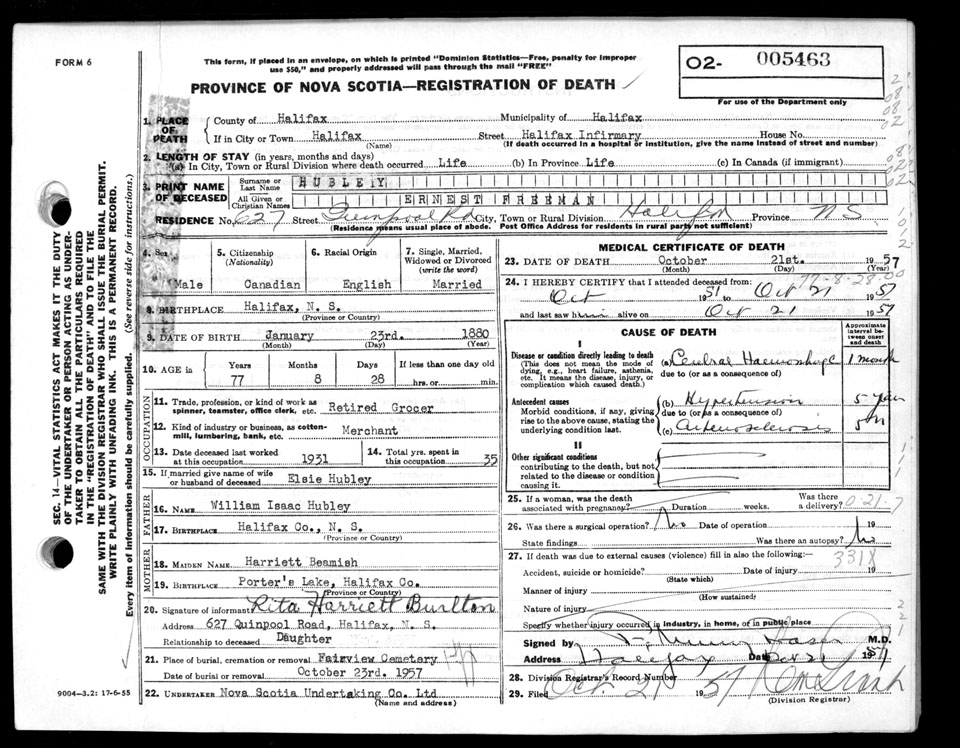 FORM 6
This form, if placed in an envelope, on which is printed "Dominion Statistics—Free, penalty for improper
use $50," and properly addressed will pass through the mail "FREE"
PROVINCE OF NOVA SCOTIA—REGISTRATION OF DEATH
O2- 005463
For use of the Department only
1. PLACE OF DEATH
County of Halifax Municipality of Halifax
If in City or Town Halifax Street Halifax Infirmary House No.
(Name) (If death occurred in a hospital or institution, give the name instead of street and number)
2. LENGTH OF STAY (in years, months and days)
(a) In City, Town or Rural Division where death occurred Life (b) In Province Life (c) In Canada (if immigrant)
3. PRINT NAME OF DECEASED
Surname or Last Name HUBLEY
All Given or Christian Names ERNEST FREEMAN
RESIDENCE No. 627 Street Quinpool Rd City, Town or Rural Division Halifax Province N S
(Residence means usual place of abode. Post Office Address for residents in rural parts not sufficient)
4. Sex 5. Citizenship (Nationality) 6. Racial Origin 7. Single, Married, Widowed or Divorced (write the word)
Male Canadian English Married
8. BIRTHPLACE Halifax, N. S.
(Province or Country)
9. DATE OF BIRTH January 23rd. 1880
(Month) (Day) (Year)
10. AGE in Years Months Days If less than one day old
77 8 28 hrs. or min.
OCCUPATION
11. Trade, profession, or kind of work as
spinner, teamster, office clerk, etc. Retired Grocer
12. Kind of industry or business, as cotton-
mill, lumbering, bank, etc. Merchant
13. Date deceased last worked
at this occupation 1931
14. Total yrs. spent in
this occupation 35
15. If married give name of wife
or husband of deceased Elsie Hubley
FATHER
16. NAME William Isaac Hubley
17. BIRTHPLACE Halifax Co., N. S.
(Province or Country)
MOTHER
18. MAIDEN NAME Harriett Beamish
19. BIRTHPLACE Porter's Lake, Halifax Co.
(Province or Country)
20. Signature of informant Rita Harriett Burlton
Address 627 Quinpool Road, Halifax, N. S.
Relationship to deceased Daughter
21. Place of burial, cremation or removal Fairview Cemetery
Date of burial or removal October 23rd. 1957
22. UNDERTAKER Nova Scotia Undertaking Co. Ltd
(Name and address)
9004-3.2: 17-6-55
SEC. 14—VITAL STATISTICS ACT MAKES IT THE DUTY
OF THE UNDERTAKER OR PERSON ACTING AS UNDER-
TAKER TO OBTAIN ALL THE PARTICULARS REQUIRED
IN THE "REGISTRATION OF DEATH" AND TO FILE THE
SAME WITH THE DIVISION REGISTRAR WHO SHALL ISSUE THE BURIAL PERMIT.
WRITE PLAINLY WITH UNFADING INK. THIS IS A PERMANENT RECORD.
Every item of information should be carefully supplied. (See reverse side for instructions.)
MEDICAL CERTIFICATE OF DEATH
23. DATE OF DEATH October 21st. 1957
(Month) (Day) (Year)
24. I HEREBY CERTIFY that I attended deceased from: 77-8-28-00
Oct 1951 to Oct 21 1957
and last saw him alive on Oct 21 1957
CAUSE OF DEATH
Approximate interval between onset and death
I
Disease or condition directly leading to death
(This does not mean the mode of
dying, e.g., heart failure, asthenia,
etc. It means the disease, injury, or
complication which caused death.)
(a) Cerebral Haemorrhage 1 month
due to (or as a consequence of)
Antecedent causes
Morbid conditions, if any, giving
rise to the above cause, stating the
underlying condition last.
(b) Hypertension 5 years
due to (or as a consequence of)
(c) Arteriosclerosis 5
II
Other significant conditions
contributing to the death, but not
related to the disease or condition
causing it.
25. If a woman, was the death
associated with pregnancy? Duration weeks. Was there
a delivery?
26. Was there a surgical operation? No Date of operation 19
State findings Was there an autopsy? No
27. If death was due to external causes (violence) fill in also the following:—
331X
Accident, suicide or homicide? Date of injury 19
(State which)
Manner of injury
(How sustained)
Nature of injury
Specify whether injury occurred in industry, in home, or in public place
Signed by M.D.
Address Halifax Date Oct 21 1957
28. Division Registrar's Record Number
29. Filed Oct 21 1957
(Division Registrar)